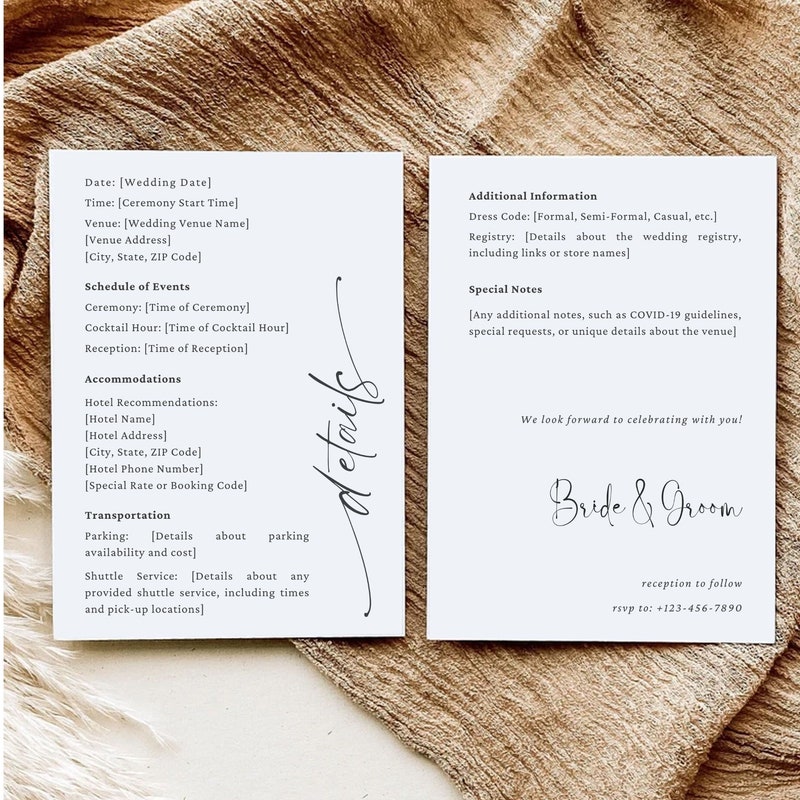 Date: [Wedding Date]
Time: [Ceremony Start Time]
Venue: [Wedding Venue Name]
[Venue Address]
[City, State, ZIP Code]
Schedule of Events
Ceremony: [Time of Ceremony]
Cocktail Hour: [Time of Cocktail Hour]
Reception: [Time of Reception]
Accommodations
Hotel Recommendations:
[Hotel Name]
[Hotel Address]
[City, State, ZIP Code]
[Hotel Phone Number]
[Special Rate or Booking Code]
Transportation
Parking: [Details about parking
availability and cost]
Shuttle Service: [Details about any
provided shuttle service, including times
and pick-up locations]
details
Additional Information
Dress Code: [Formal, Semi-Formal, Casual, etc.]
Registry: [Details about the wedding registry,
including links or store names]
Special Notes
[Any additional notes, such as COVID-19 guidelines,
special requests, or unique details about the venue]
We look forward to celebrating with you!
Bride & Groom
reception to follow
rsvp to: +123-456-7890